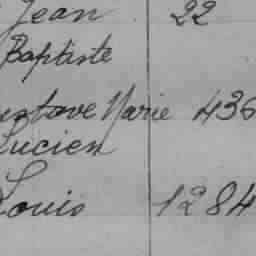 Jean 22
Baptiste
ustave Marie 436
Lucien
Louis 1284